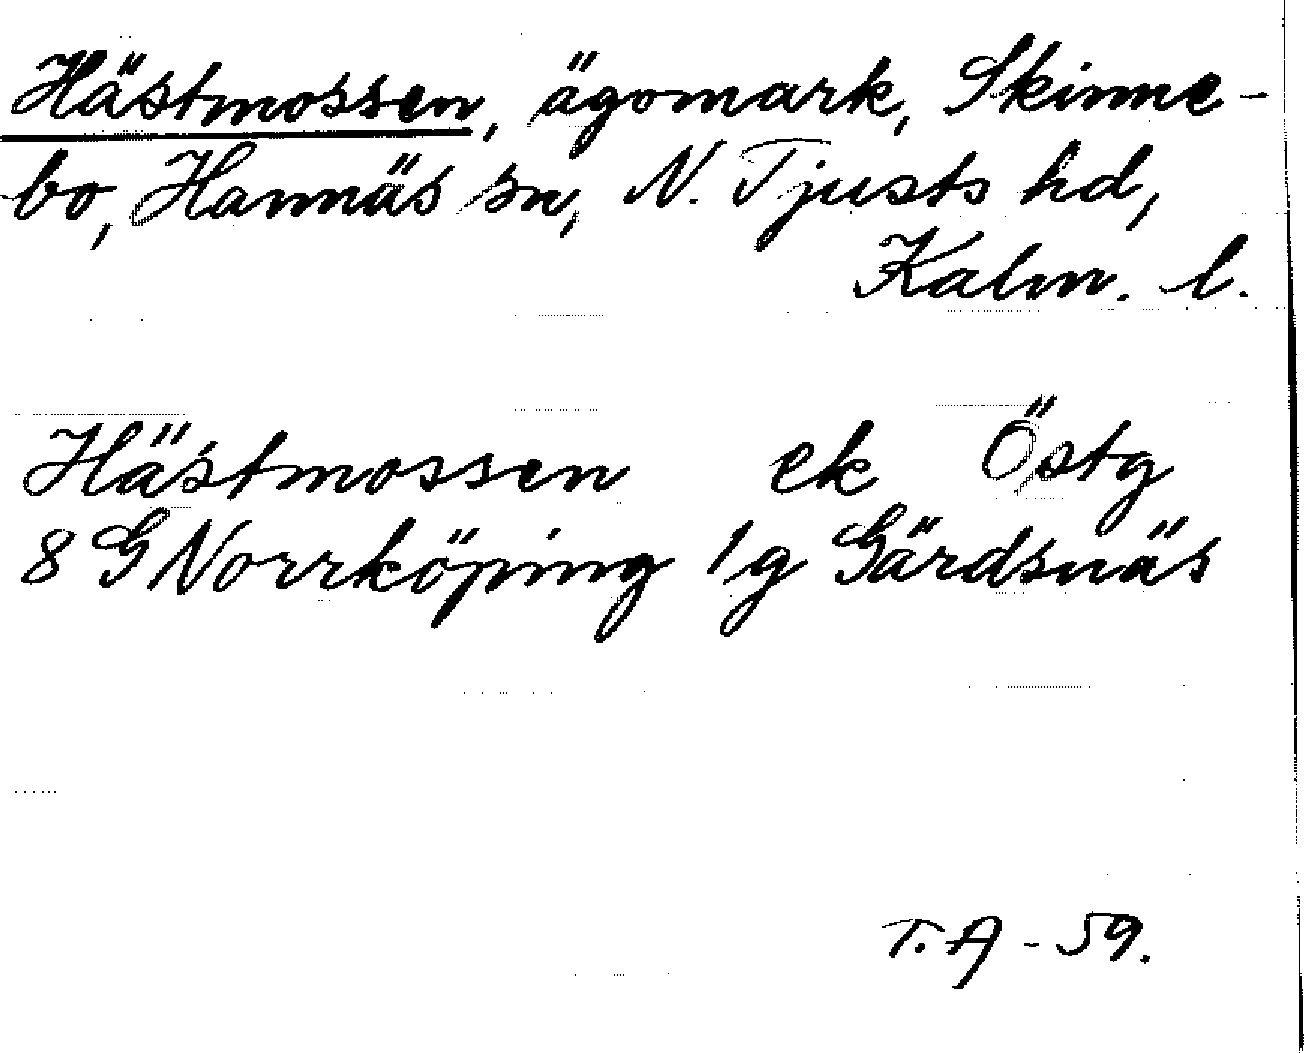 Hästmossen, ägomark, Skinne-
bo, Hannäs sn, N. Tjusts hd,
Kalm. l.
Hästmossen ek Östg
8 G Norrköping 1g Gärdsnäs
T.A - 59.